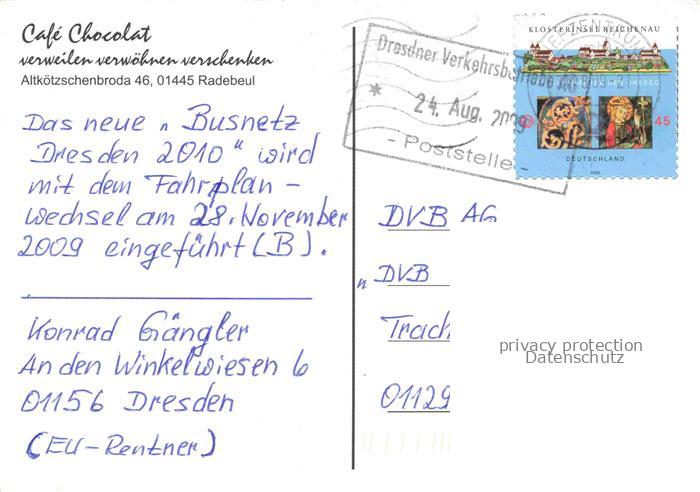 Café Chocolat
verweilen verwöhnen verschenken
Altkötzschenbroda 46, 01445 Radebeul
Das neue „Busnetz
Dresden 2010" wird
mit dem Fahrplan-
wechsel am 28. November
2009 eingeführt (B).
Konrad Gängler
An den Winkelwiesen 6
01156 Dresden
(EU-Rentner)
Dresdner Verkehrsbetriebe AG
* 24. Aug. 2009
- Poststelle -
KLOSTERINSEL REICHENAU
45
DEUTSCHLAND
DVB AG
„DVB
Trach
01129
privacy protection
Datenschutz